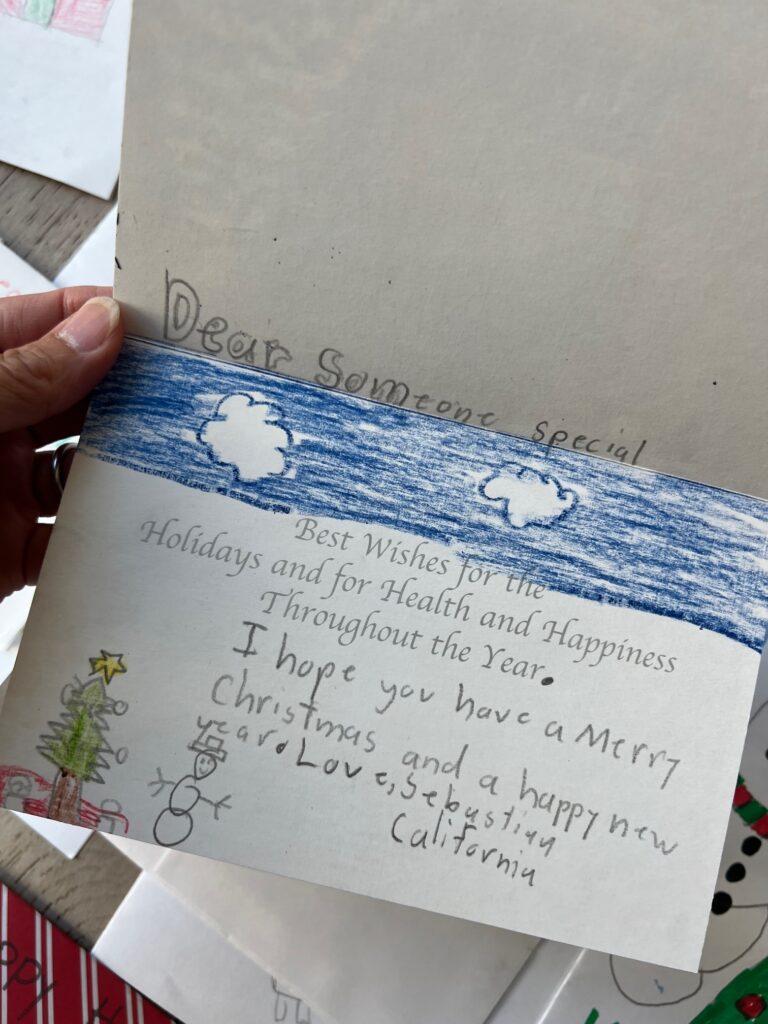 Dear Someone special
Best Wishes for the
Holidays and for Health and Happiness
Throughout the Year.
I hope you have a Merry
Christmas and a happy new
year. Love, Sebastian
California
ppy H